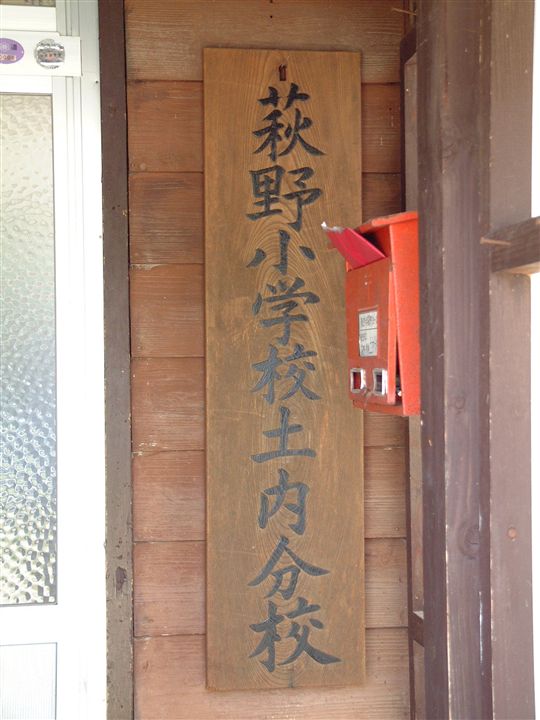 萩野小学校土内分校